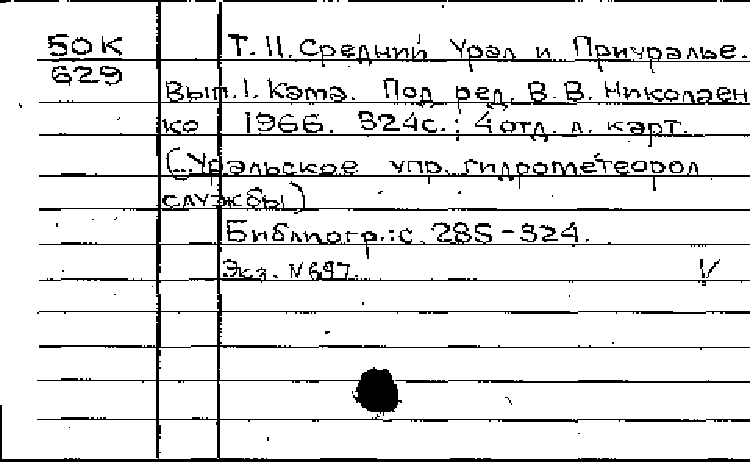 50К
629
Т. 11. Средний Урал и Приуралье.
Вып. 1. Кама. Под ред. В. В. Николаен
ко 1966. 324с.; 4 отд. л. карт.
(Уральское упр. гидрометеорол
службы)
Библиогр.: с. 285-324.
Экз. N 697.